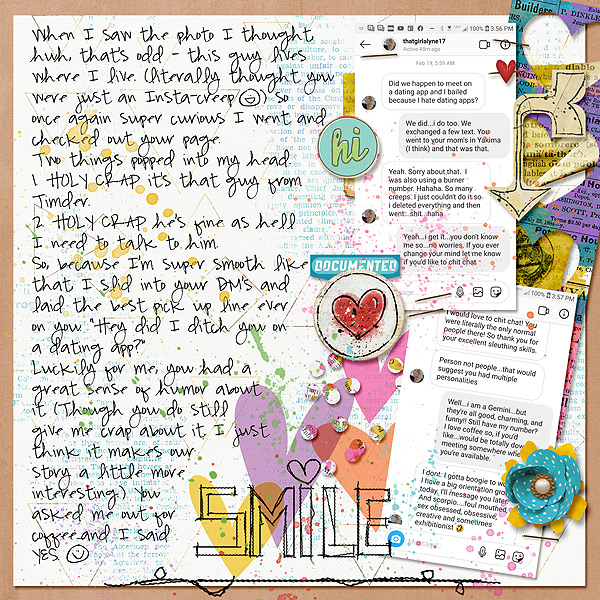 When I saw the photo I thought
huh that's odd - this guy lives
where I live (literally thought you
were just an Insta-creep ) so
once again super curious I went and
checked out your page.
Two things popped into my head.
1. HOLY CRAP it's that guy from
Tinder
2. HOLY CRAP he's fine as hell
I need to talk to him
So, because I'm super smooth like
that I slid into your DM's and
laid the best pick up line ever
on you. "Hey did I ditch you on
a dating app?"
Luckily for me, you had a
great sense of humor about
it. (Though you do still
give me crap about it I just
think it makes our
story a little more
interesting.) You
asked me out for
coffee and I said
YES
3:56 PM
thatgirlslyne17
Active 48m ago
Feb 19, 5:59 AM
Did we happen to meet on
a dating app and I bailed
because I hate dating apps?
We did...i do too. We
exchanged a few text. You
went to your mom's in Yakima
(I think) and that was that.
Yeah. Sorry about that. I
was also using a burner
number. Hahaha. So many
creeps. I just couldn't do it so
I deleted everything and then
went...shit...haha
Yeah...i get it...you don't know
me so...no worries. If you ever
change your mind let me know
if you'd like to chit chat
hi
DOCUMENTED
100% 3:57 PM
I would love to chit chat! You
were literally the only normal
people there! So thank you for
your excellent sleuthing skills.
Person not people...that would
suggest you had multiple
personalities
Well...i am a Gemini...but
they're all good, charming, and
funny! Still have my number
I love coffee so, if you'd
like...would be totally down
meeting somewhere when
you're available.
I dont. I gotta boogie to
I have a big orientation
today. I'll message you later
And scorpio...foul mouthed,
sex obsessed, obsessive,
creative and sometimes
exhibitionist
SMILE
Builders
P. DINKLE